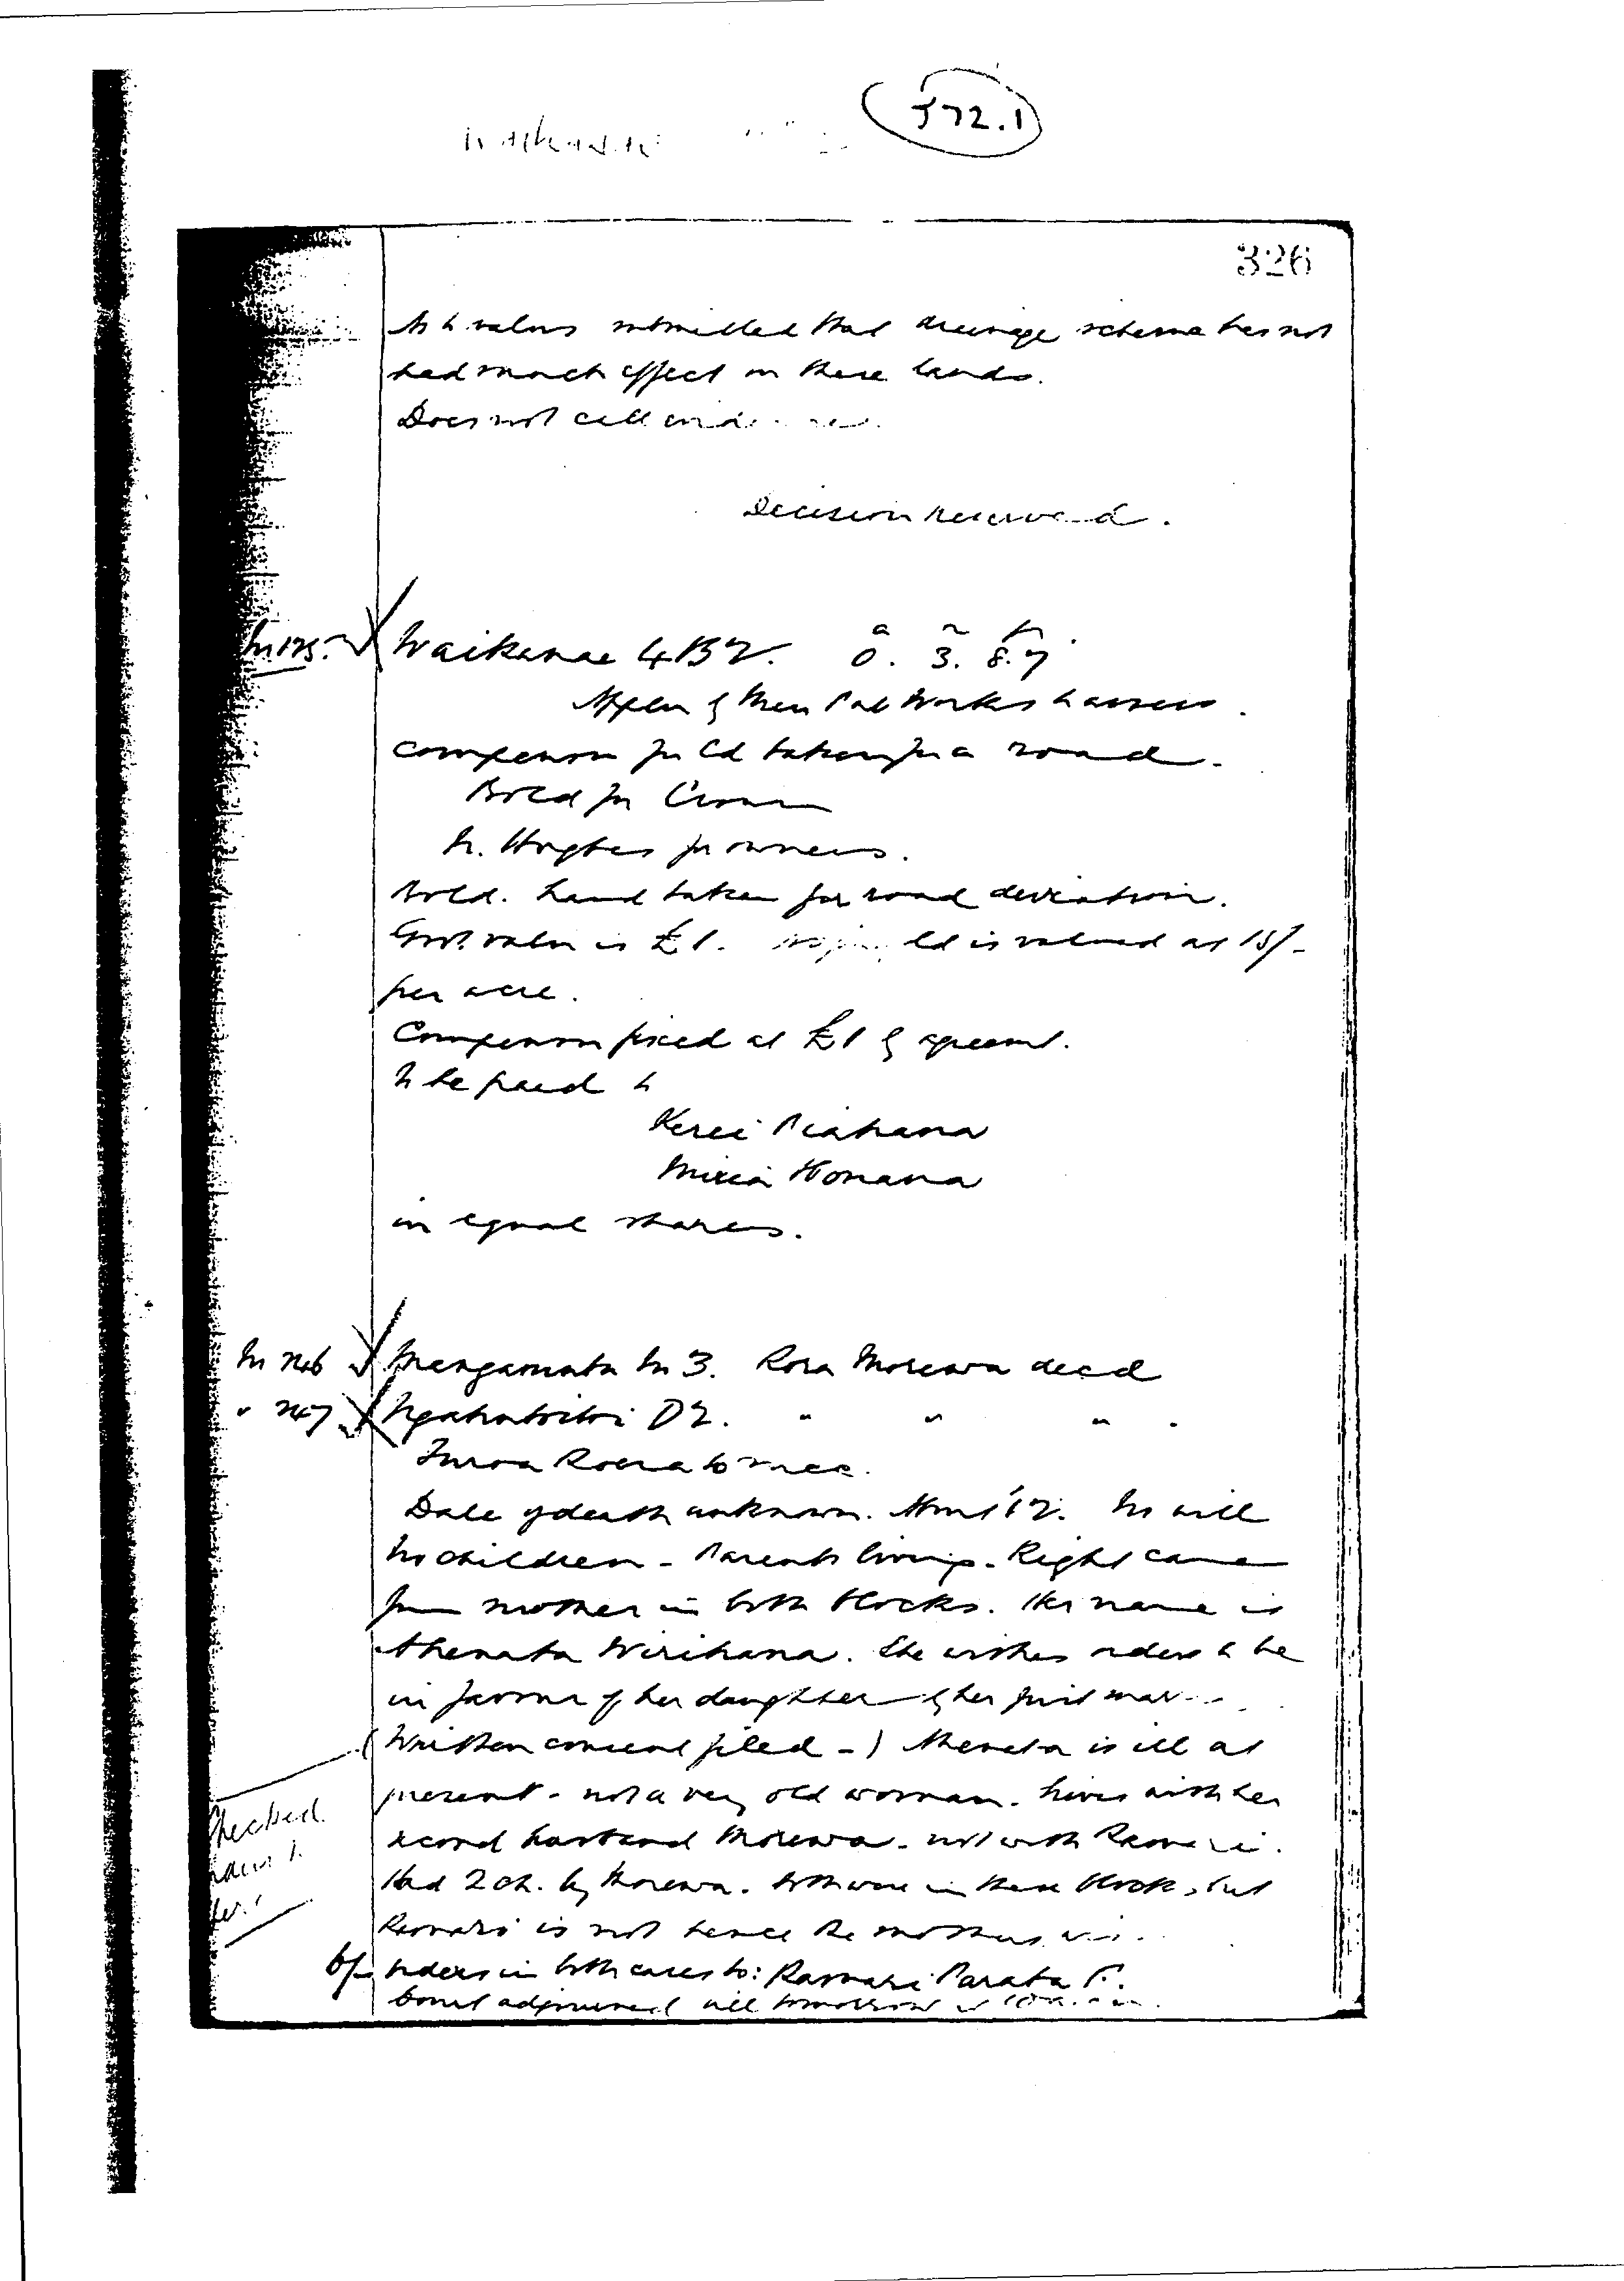 572.1
Waikanae
326
As to values submitted that drainage scheme has not
had much effect on these lands.
Does not call
Decision reserved.
Waikanae 4B2. 0. 3. 8.7
a r p
Appln of Min Pub Works to assess
compenson for ld taken for a road.
Bold for Crown
Mr. Hughes for owners.
Bold. Land taken for road deviation.
Govt. value is £1. ld is valued at 15/-
per acre.
Compenson fixed at £1 by agreemt.
To be paid to
Kerei
Miria Honana
in equal shares.
Mangamata No 3. Rora Morewa decd
Ngakaroro D2. " " " .
Date of death unknown. Abt '12. No will
No children - Parents living. Right came
from mother in both blocks. Her name is
Wirihana. She wishes orders to be
in favour of her daughter by her first
(Written consent filed -) is ill at
present - not a very old woman. Lives with her
second husband Morewa - not with
Had 2 ch. by Morewa. Both were in these blocks, but
is not hence the mother's
Orders in both cases to: Ramari Parata f.
Court adjourned till tomorrow at 10 a.m.
Checked.